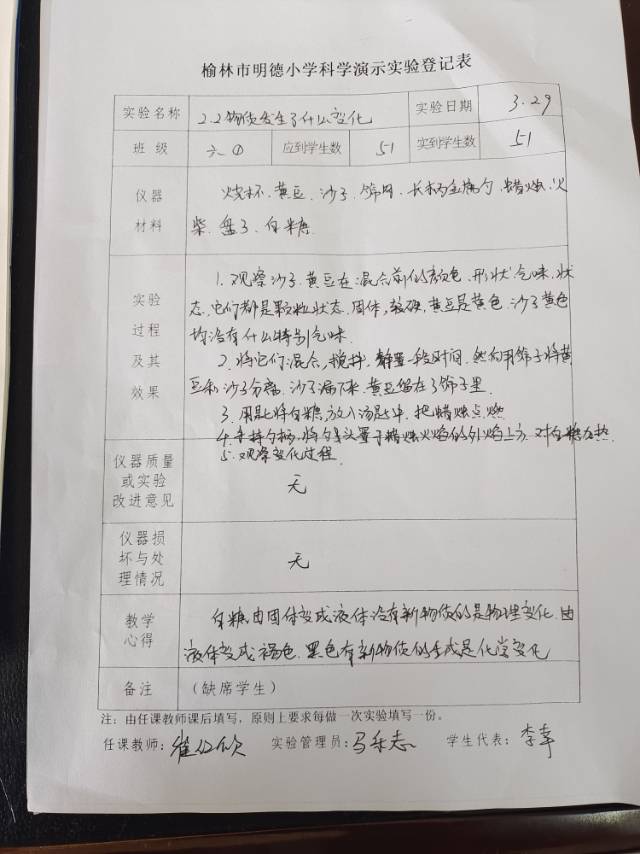 榆林市明德小学科学演示实验登记表
实验名称 2.2物质发生了什么变化 实验日期 3.29
班级 六① 应到学生数 51 实到学生数 51
仪器 烧杯、黄豆、沙子、筛网、长柄金属勺、蜡烛、火
材料 柴、盘子、白糖
1.观察沙子、黄豆在混合前的颜色、形状、气味、状
实验 态,它们都是颗粒状态、固体,较硬,黄豆是黄色,沙子黄色
过程 均没有什么特别气味
及其 2.将它们混合,搅拌,静置一段时间,然后用筛子将黄
效果 豆和沙子分离,沙子漏下来,黄豆留在了筛子里
3.用匙将白糖,放入汤匙中,把蜡烛点燃
4.手持勺柄,将勺头置于蜡烛火焰的外焰上方,对白糖加热
5.观察变化过程
仪器质量
或实验 无
改进意见
仪器损
坏与处 无
理情况
教学 白糖由固体变成液体没有新物质的是物理变化,由
心得 液体变成褐色、黑色有新物质的生成是化学变化
备注 (缺席学生)
注:由任课教师课后填写,原则上要求每做一次实验填写一份。
任课教师: 实验管理员:马乐志 学生代表:李幸